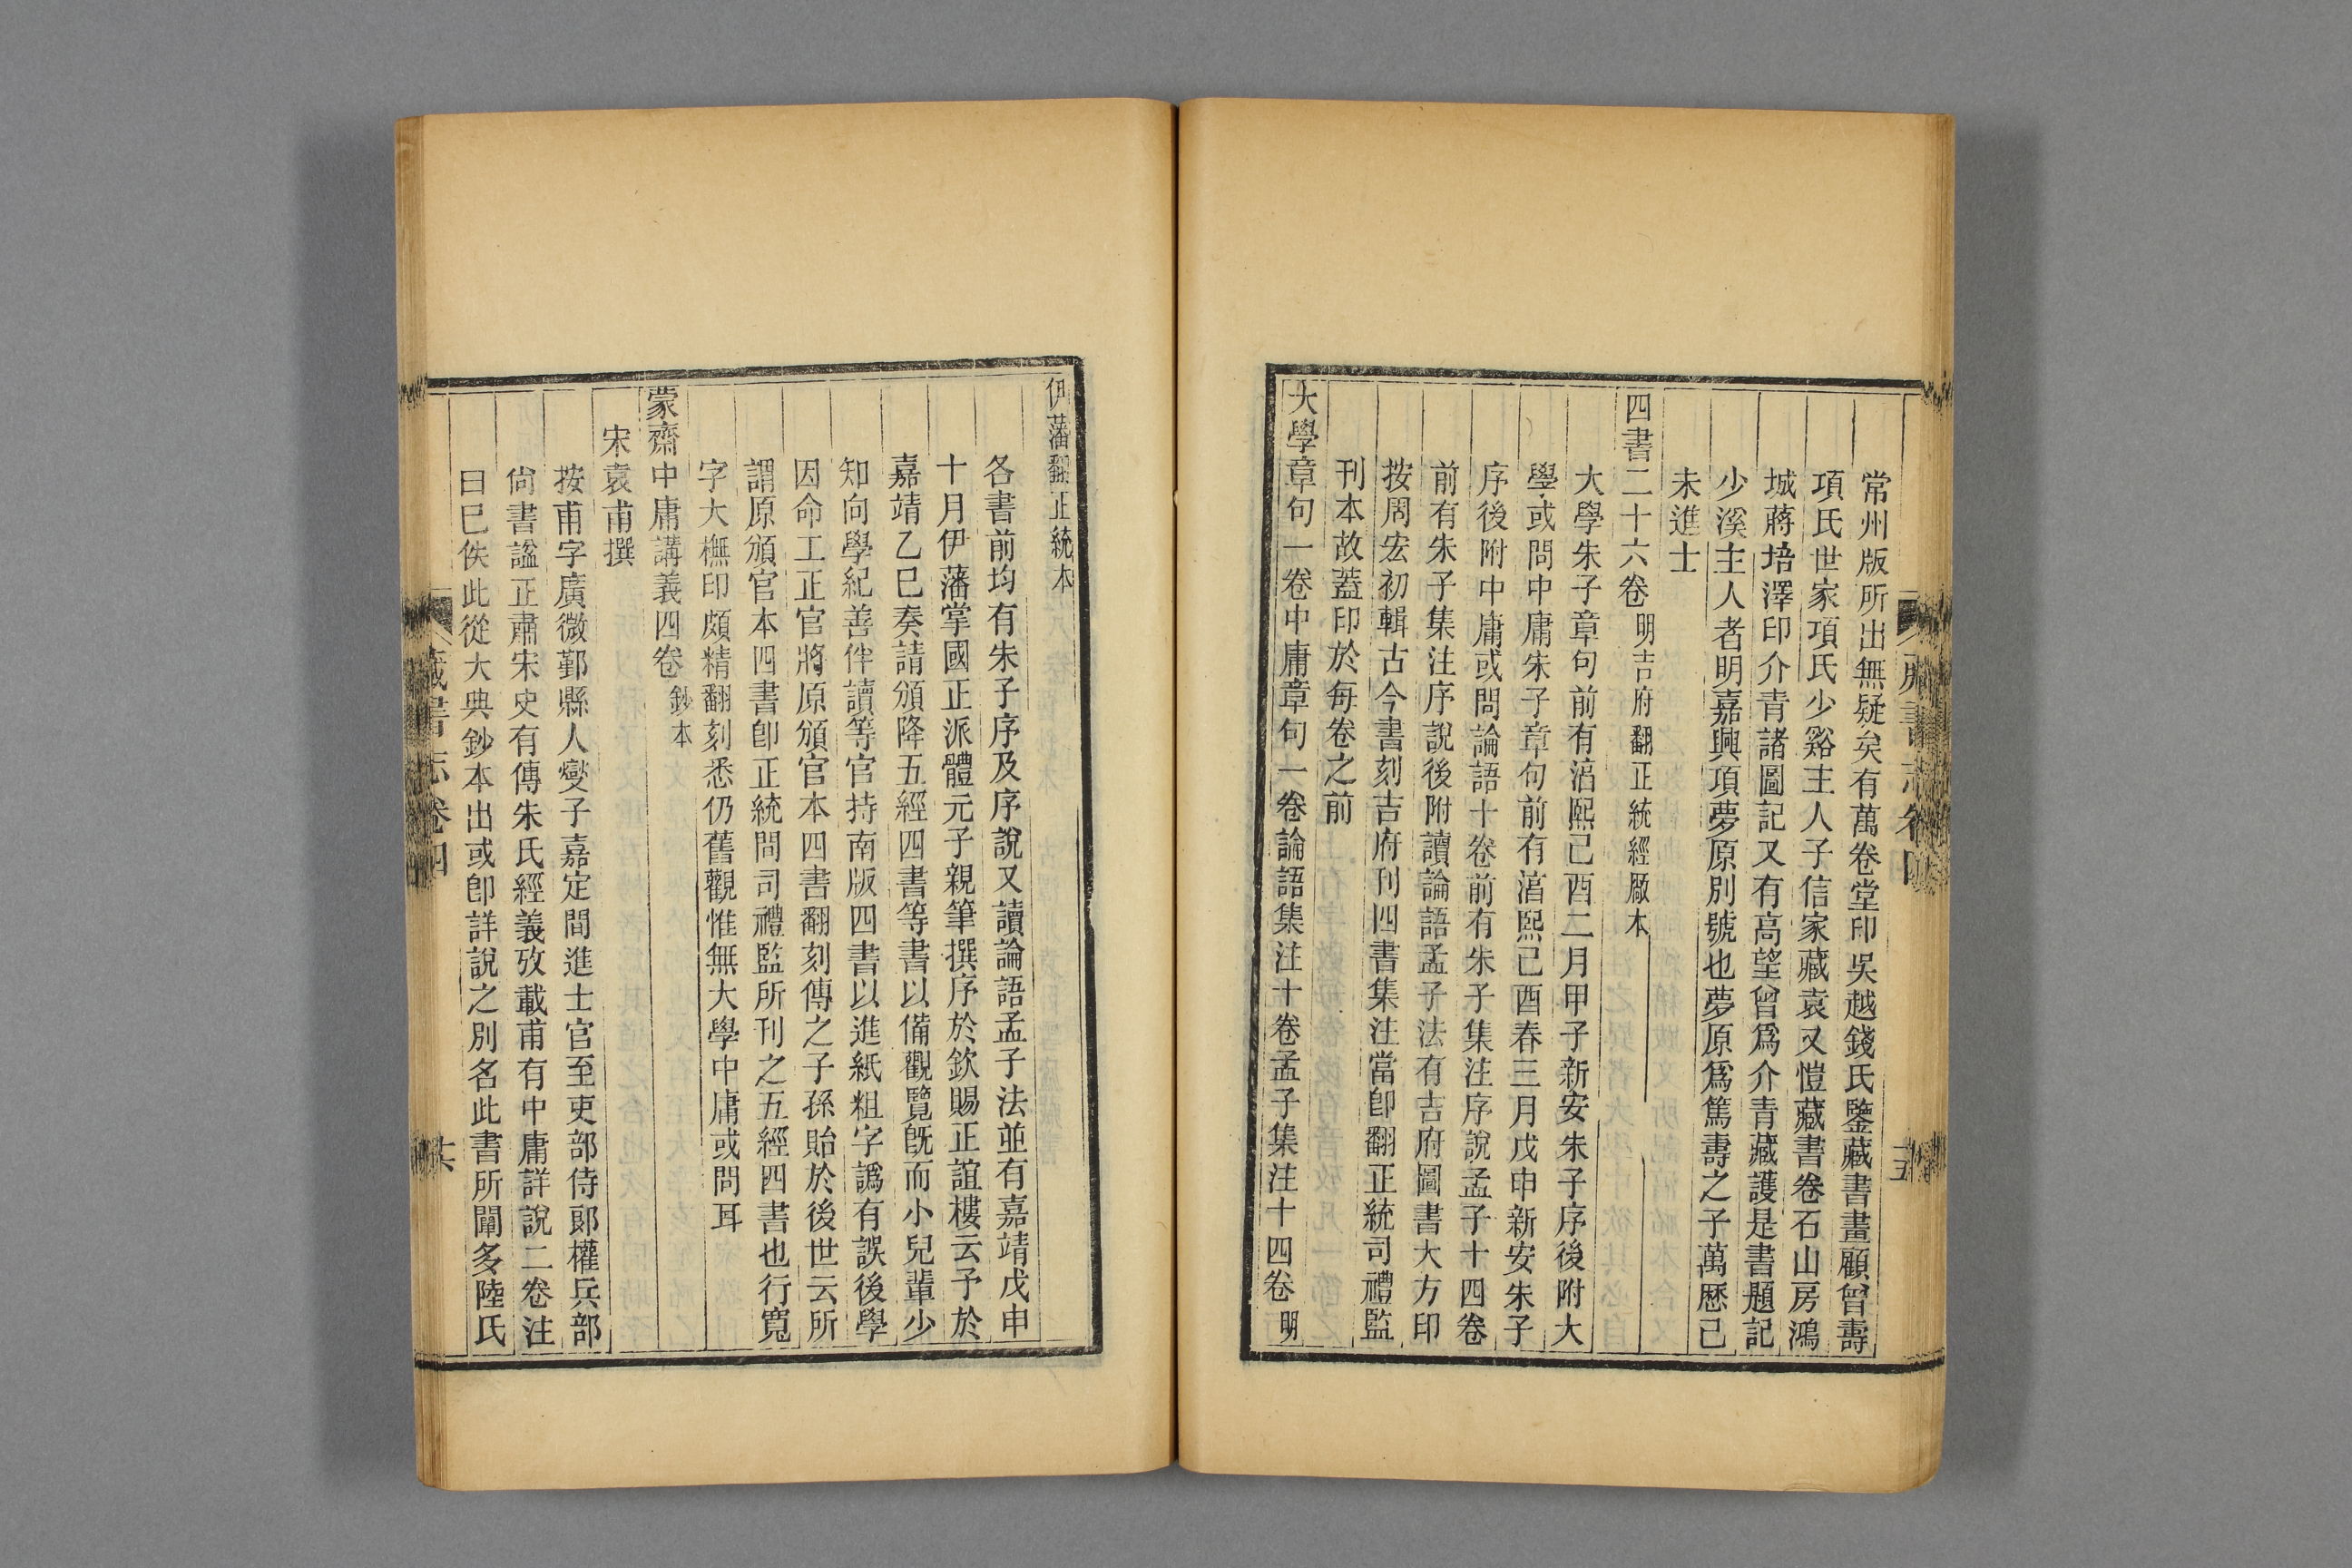 常州版所出無疑矣有萬卷堂印吳越錢氏鑒藏書畫顧曾壽
項氏世家項氏少谿主人子信家藏袁又愷藏書卷石山房鴻
城蔣培澤印介青諸圖記又有高望曾爲介青藏護是書題記
少溪主人者明嘉興項夢原別號也夢原爲篤壽之子萬歷己
未進士
四書二十六卷明吉府翻正統經廠本
大學朱子章句前有湻熙己酉二月甲子新安朱子序後附大
學或問中庸朱子章句前有湻熙己酉春三月戊申新安朱子
序後附中庸或問論語十卷前有朱子集注序說孟子十四卷
前有朱子集注序說後附讀論語孟子法有吉府圖書大方印
按周宏初輯古今書刻吉府刊四書集注當卽翻正統司禮監
刊本故蓋印於每卷之前
大學章句一卷中庸章句一卷論語集注十卷孟子集注十四卷明
伊藩翻正統本
各書前均有朱子序及序說又讀論語孟子法並有嘉靖戊申
十月伊藩掌國正派體元子親筆撰序於欽賜正誼樓云予於
嘉靖乙巳奏請頒降五經四書等書以備觀覽旣而小兒輩少
知向學紀善伴讀等官持南版四書以進紙粗字譌有誤後學
因命工正官將原頒官本四書翻刻傳之子孫貽於後世云所
謂原頒官本四書卽正統問司禮監所刊之五經四書也行寬
字大橅印頗精翻刻悉仍舊觀惟無大學中庸或問耳
蒙齋中庸講義四卷鈔本
宋袁甫撰
按甫字廣微鄞縣人燮子嘉定間進士官至吏部侍郞權兵部
尙書謚正肅宋史有傳朱氏經義攷載甫有中庸詳說二卷注
曰已佚此從大典鈔本出或卽詳說之別名此書所闡多陸氏
藏書志卷四